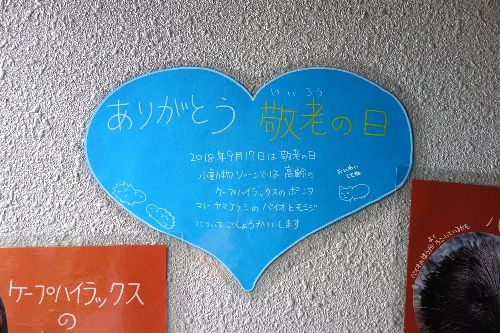 ありがとう 敬老の日
けいろう
2018年9月17日は敬老の日
小動物ゾーンでは 高齢の
ケープハイラックスの ポンタ
マレーヤマアラシの バイオとモミジ
についてごしょうかいします
ケープハイラックス
の